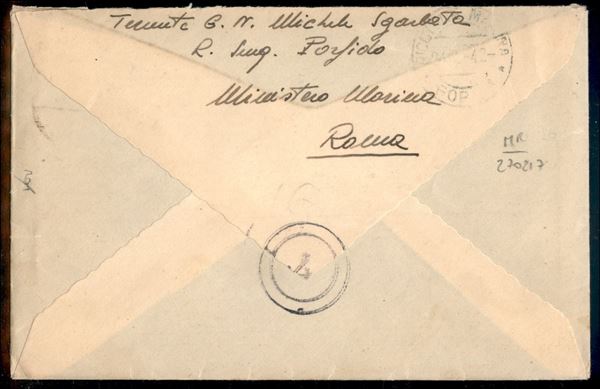 Tenente G. N. Michele Sgarbata
R. Smg. Porfido
Ministero Marina
Roma
MR
270217
4